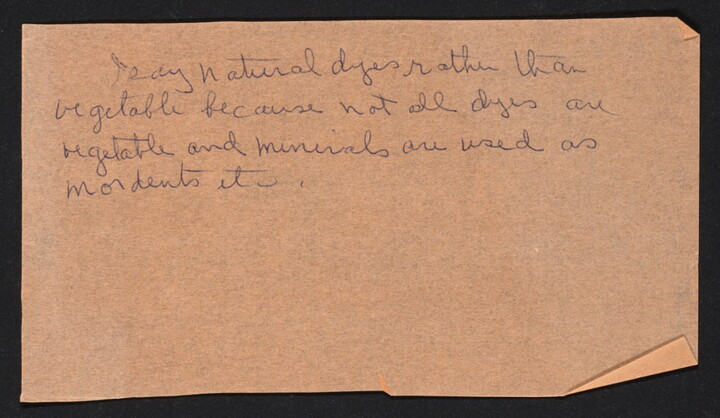 I say natural dyes rather than
vegetable because not all dyes are
vegetable and minerals are used as
mordents etc.